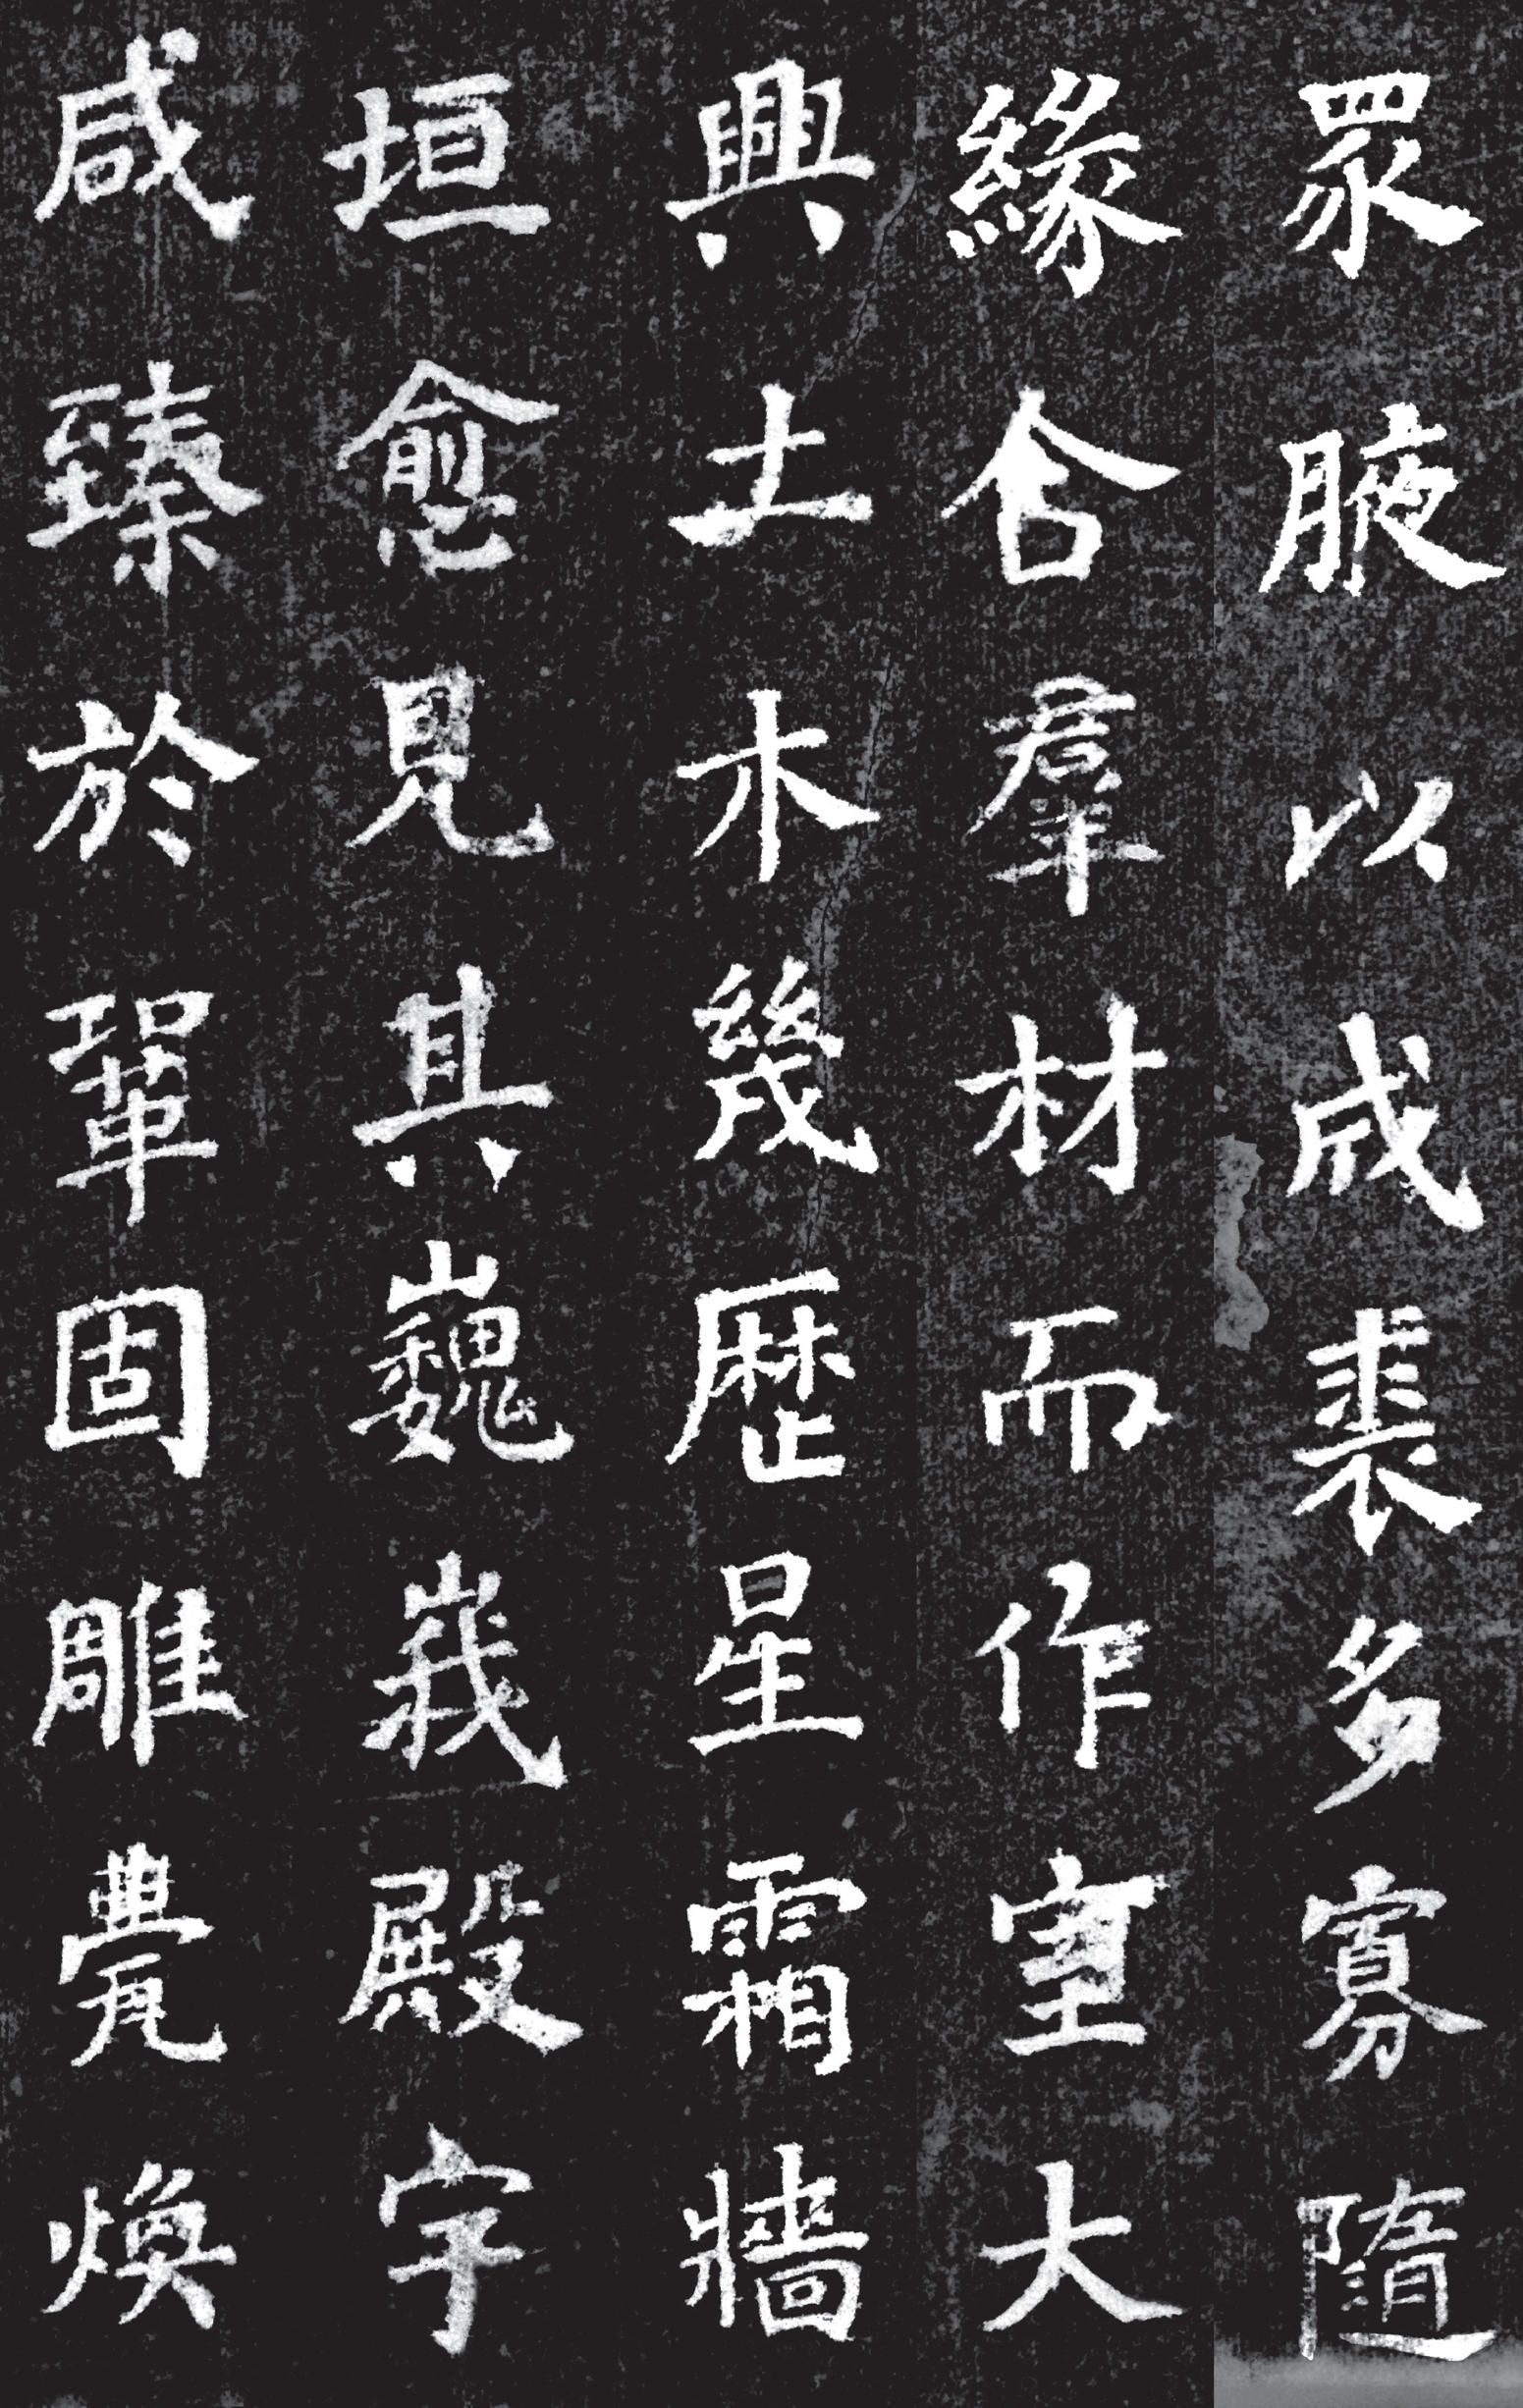 眾腋以成裘多寡隨
緣合羣材而作室大
興土木幾歷星霜牆
垣愈見其巍峩殿宇
咸臻於鞏固雕甍煥